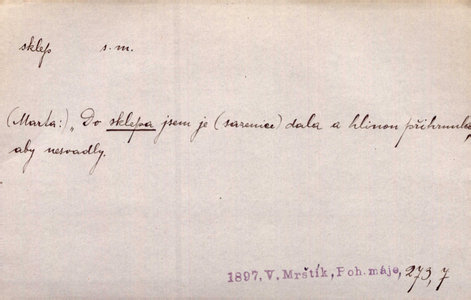 sklep s. m.
(Marta:) „Do sklepa jsem je (sazenice) dala a hlinou přihrnula,
aby nesvadly.
1897, V. Mrštík, Poh. máje, 273, 7